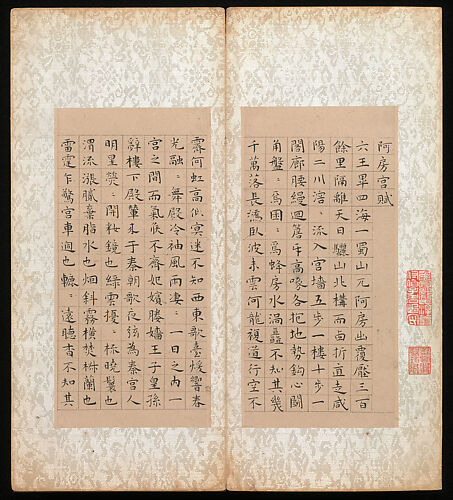 阿房宮賦
六王畢四海一蜀山兀阿房出覆壓三百
餘里隔離天日驪山北構而西折直走咸
陽二川溶〻流入宮墻五步一樓十步一
閣廊腰縵迴簷牙高啄各抱地勢鉤心鬬
角盤〻焉囷〻焉蜂房水渦矗不知其幾
千萬落長橋臥波未雲何龍複道行空不
霽何虹高低冥迷不知西東歌臺煖響春
光融〻舞殿冷袖風雨淒〻一日之內一
宮之間而氣候不齊妃嬪媵嬙王子皇孫
辭樓下殿輦來于秦朝歌夜弦為秦宮人
明星熒〻開粧鏡也綠雲擾〻梳曉鬟也
渭流漲膩棄脂水也烟斜霧橫焚椒蘭也
雷霆乍驚宮車過也轆〻遠聽杳不知其